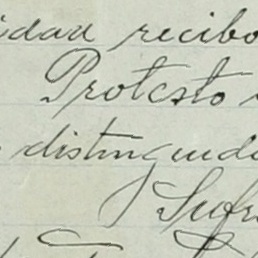 idad recibo
Protesto
distinguida
Sufra